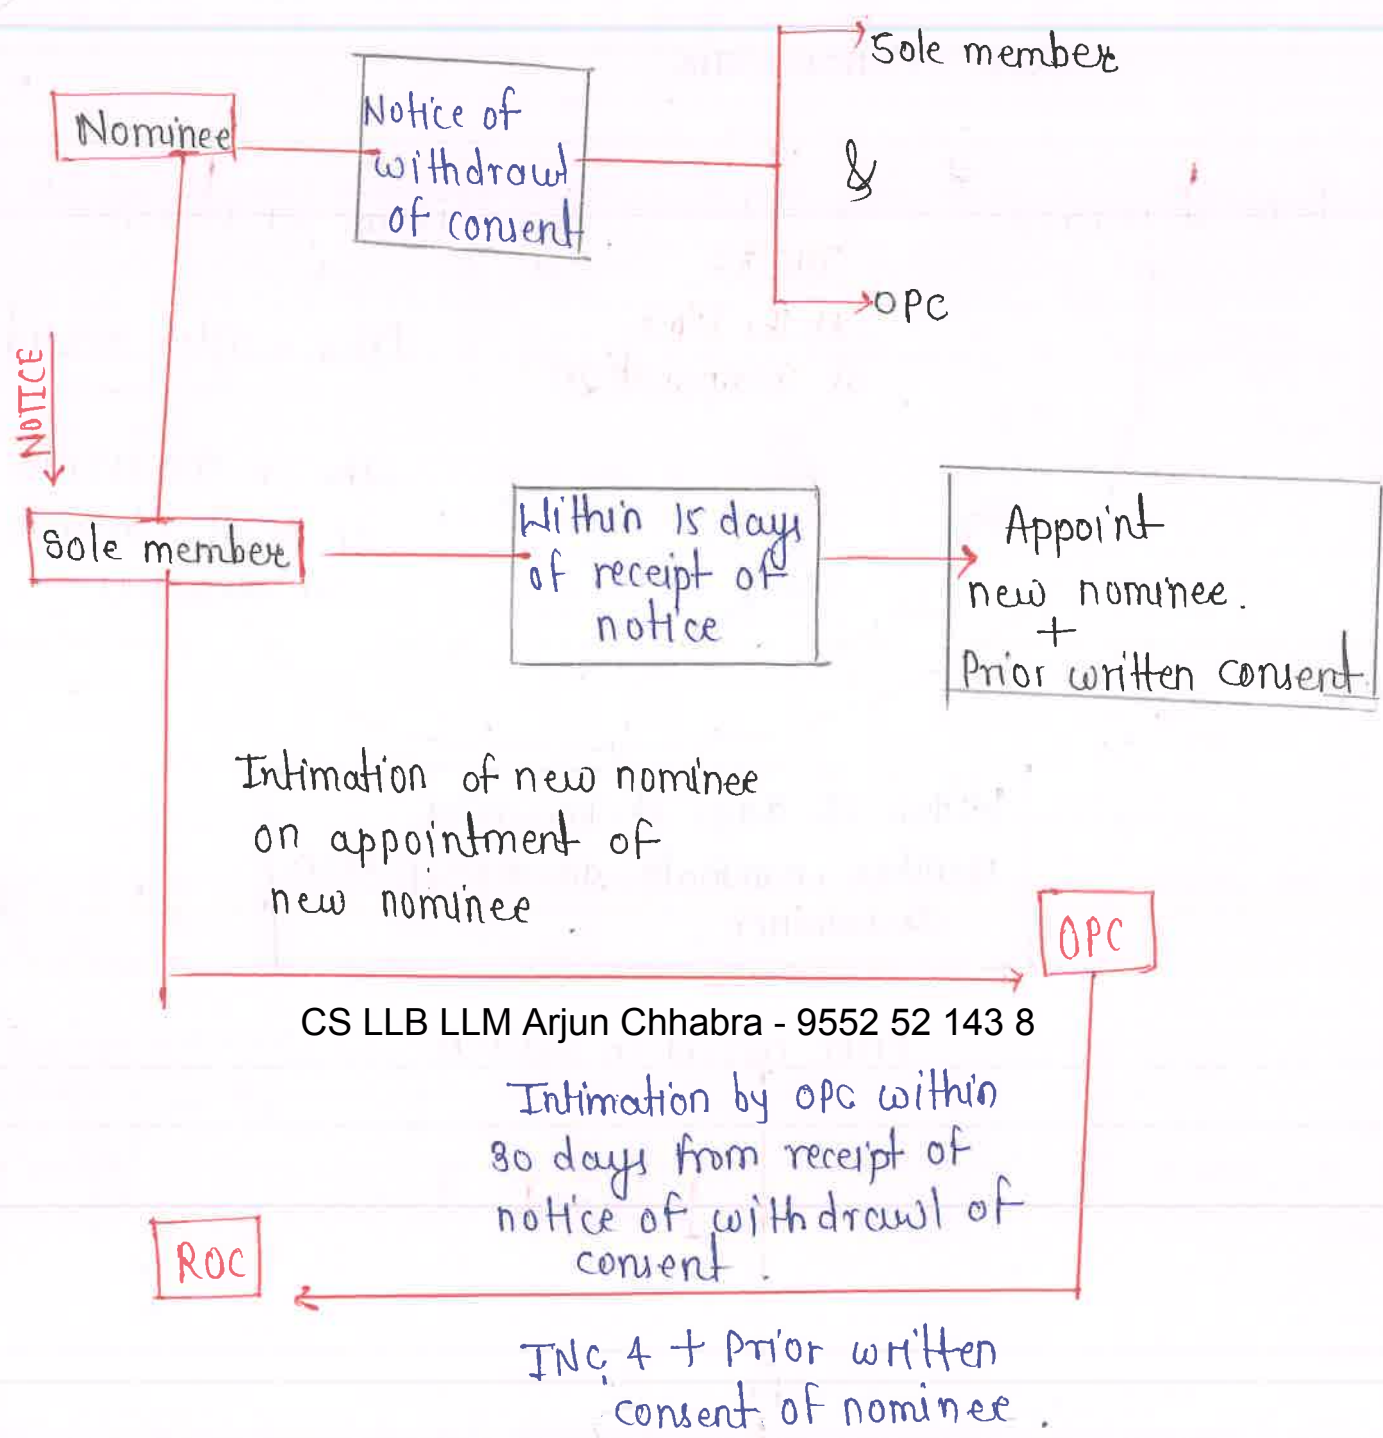 Sole member
Nominee
Notice of
withdrawl
of consent
&
OPC
NOTICE
Sole member
Within 15 days
of receipt of
notice
Appoint
new nominee.
+
Prior written consent
Intimation of new nominee
on appointment of
new nominee.
OPC
CS LLB LLM Arjun Chhabra - 9552 52 143 8
Intimation by OPC within
30 days from receipt of
notice of withdrawl of
consent.
ROC
INC 4 + Prior written
consent of nominee.